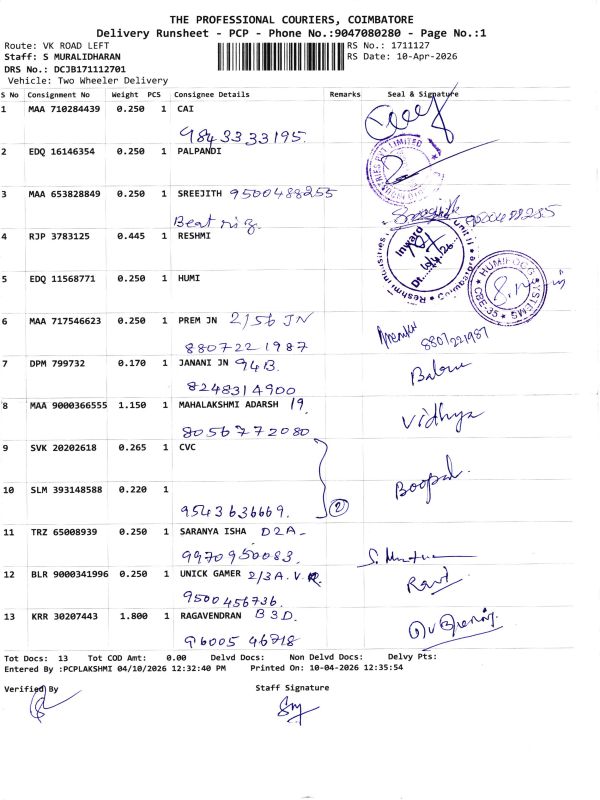 THE PROFESSIONAL COURIERS, COIMBATORE
Delivery Runsheet - PCP - Phone No.:9047080280 - Page No.:1
Route: VK ROAD LEFT
RS No.: 1711127
Staff: S MURALIDHARAN
RS Date: 10-Apr-2026
DRS No.: DCJB171112701
Vehicle: Two Wheeler Delivery
S No Consignment No Weight PCS Consignee Details Remarks Seal & Signature
1 MAA 710284439 0.250 1 CAI
9843333195.
2 EDQ 16146354 0.250 1 PALPANDI
3 MAA 653828849 0.250 1 SREEJITH 9500488255
4 RJP 3783125 0.445 1 RESHMI
Reshmi Industries Unit II Coimbatore
Inward
Dt. 10/4/26
5 EDQ 11568771 0.250 1 HUMI
HUMIFOG SYSTEMS
CBE-35
6 MAA 717546623 0.250 1 PREM JN 2/56 JN
8807221987
8807221987
7 DPM 799732 0.170 1 JANANI JN 94B.
8248314900
8 MAA 9000366555 1.150 1 MAHALAKSHMI ADARSH 19.
8056772080
Vidhya
9 SVK 20202618 0.265 1 CVC
10 SLM 393148588 0.220 1
9543636669. 2
Boopal.
11 TRZ 65008939 0.250 1 SARANYA ISHA D2A-
9970950083.
12 BLR 9000341996 0.250 1 UNICK GAMER 2/3A.V.R.
9500456736.
13 KRR 30207443 1.800 1 RAGAVENDRAN B3D.
96005 46718
Tot Docs: 13 Tot COD Amt: 0.00 Delvd Docs: Non Delvd Docs: Delvy Pts:
Entered By :PCPLAKSHMI 04/10/2026 12:32:40 PM Printed On: 10-04-2026 12:35:54
Verified By Staff Signature